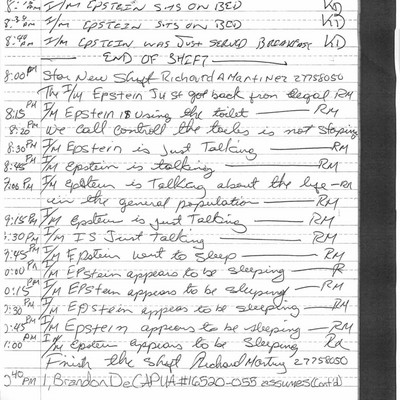 8:15 AM I/M EPSTEIN SITS ON BED KD
8:30 AM I/M EPSTEIN SITS ON BED KD
8:40 AM I/M EPSTEIN WAS JUST SERVED BREAKFAST KD
END OF SHIFT
8:00 PM Star New Sheft Richard A Martinez 27758050
The I/M Epstein Just got back from Legal RM
8:15 PM I/M Epstein is using the toilet RM
8:20 PM We call controll the toilet is not stoping
8:30 PM I/M Epstein is Just Talking RM
8:45 PM I/M Epstein is talking RM
9:00 PM I/M Epstein is Talking about the life RM
in the general population RM
9:15 PM I/M Epstein is Just Talking RM
:30 PM I/M IS Just Talking RM
9:45 PM I/M Epstein went to sleep RM
0:00 PM I/M Epstein appears to be sleeping R
0:15 PM I/M Epstein appears to be sleeping RM
:30 PM I/M Epstein appears to be sleeping RM
:45 PM I/M Epstein appears to be sleeping RM
1:00 PM I/M Epstein appears to be Sleeping
Finish the Sheft Richard 27758050
:40 PM I, Brandon DeCAPUA #16520-055 assumes (Cont'd)